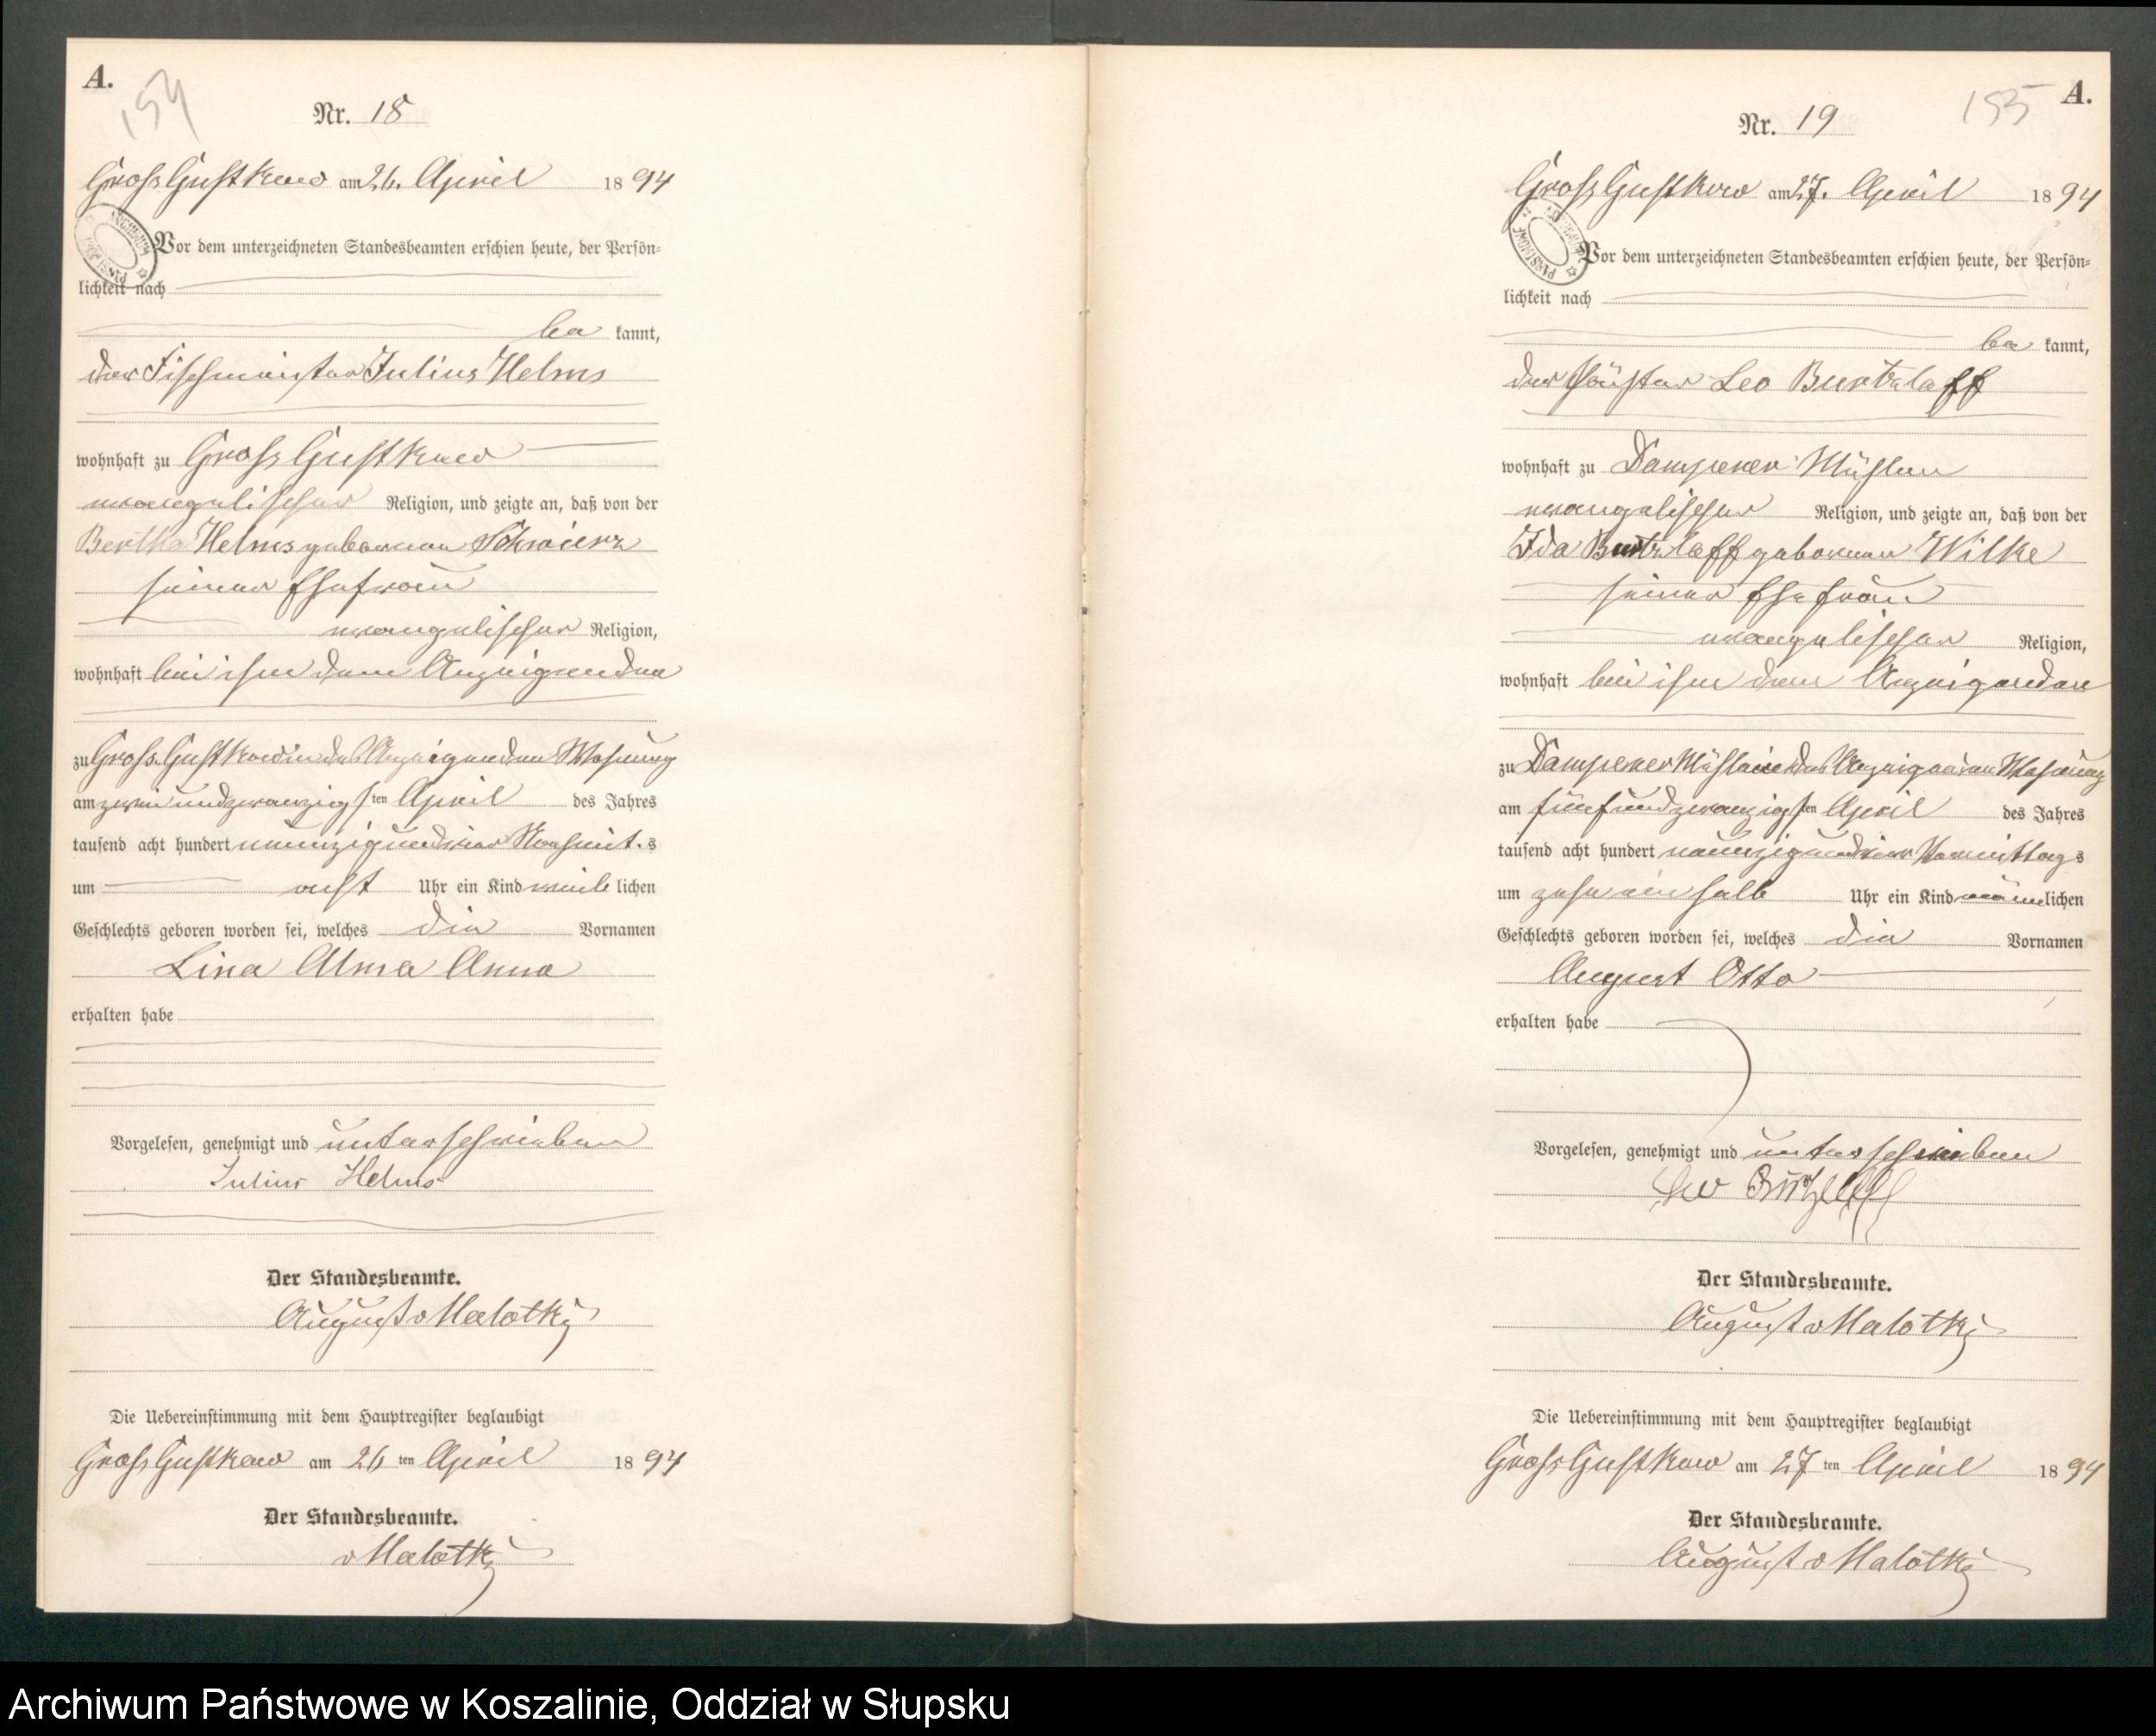 A.
154
Nr. 18
Gross Gustkow am 26. April 1894
Vor dem unterzeichneten Standesbeamten erschien heute, der Persön-
lichkeit nach
be kannt,
der Fischmeister Julius Helms
wohnhaft zu Gross Gustkow
evangelischer Religion, und zeigte an, daß von der
Bertha Helms geborenen Schwierz
seiner Ehefrau
evangelischer Religion,
wohnhaft bei ihm dem Anzeigenden
zu Gross Gustkow in des Anzeigenden Wohnung
am zwei und zwanzigsten April des Jahres
tausend acht hundert neunzig und vier Nachmit.s
um acht Uhr ein Kind weiblichen
Geschlechts geboren worden sei, welches die Vornamen
Lina Alma Anna
erhalten habe
Vorgelesen, genehmigt und unterschrieben
Julius Helms
Der Standesbeamte.
August v Malottki
Die Uebereinstimmung mit dem Hauptregister beglaubigt
Gross Gustkow am 26 ten April 1894
Der Standesbeamte.
v Malottki
155
A.
Nr. 19
Gross Gustkow am 27. April 1894
Vor dem unterzeichneten Standesbeamten erschien heute, der Persön-
lichkeit nach
be kannt,
der Leo Burtzlaff
wohnhaft zu Dampener Mühlen
evangelischer Religion, und zeigte an, daß von der
Ida Burtzlaff geborenen Wilke
seiner Ehefrau
evangelischer Religion,
wohnhaft bei ihm dem Anzeigenden
zu Dampener Mühle in des Anzeigenden Wohnung
am fünf und zwanzigsten April des Jahres
tausend acht hundert neunzig und vier Vormittags
um zehn ein halb Uhr ein Kind männlichen
Geschlechts geboren worden sei, welches die Vornamen
August Otto
erhalten habe
Vorgelesen, genehmigt und unterschrieben
Leo Burtzlaff
Der Standesbeamte.
August v Malottki
Die Uebereinstimmung mit dem Hauptregister beglaubigt
Gross Gustkow am 27 ten April 1894
Der Standesbeamte.
August v Malottki
Archiwum Państwowe w Koszalinie, Oddział w Słupsku